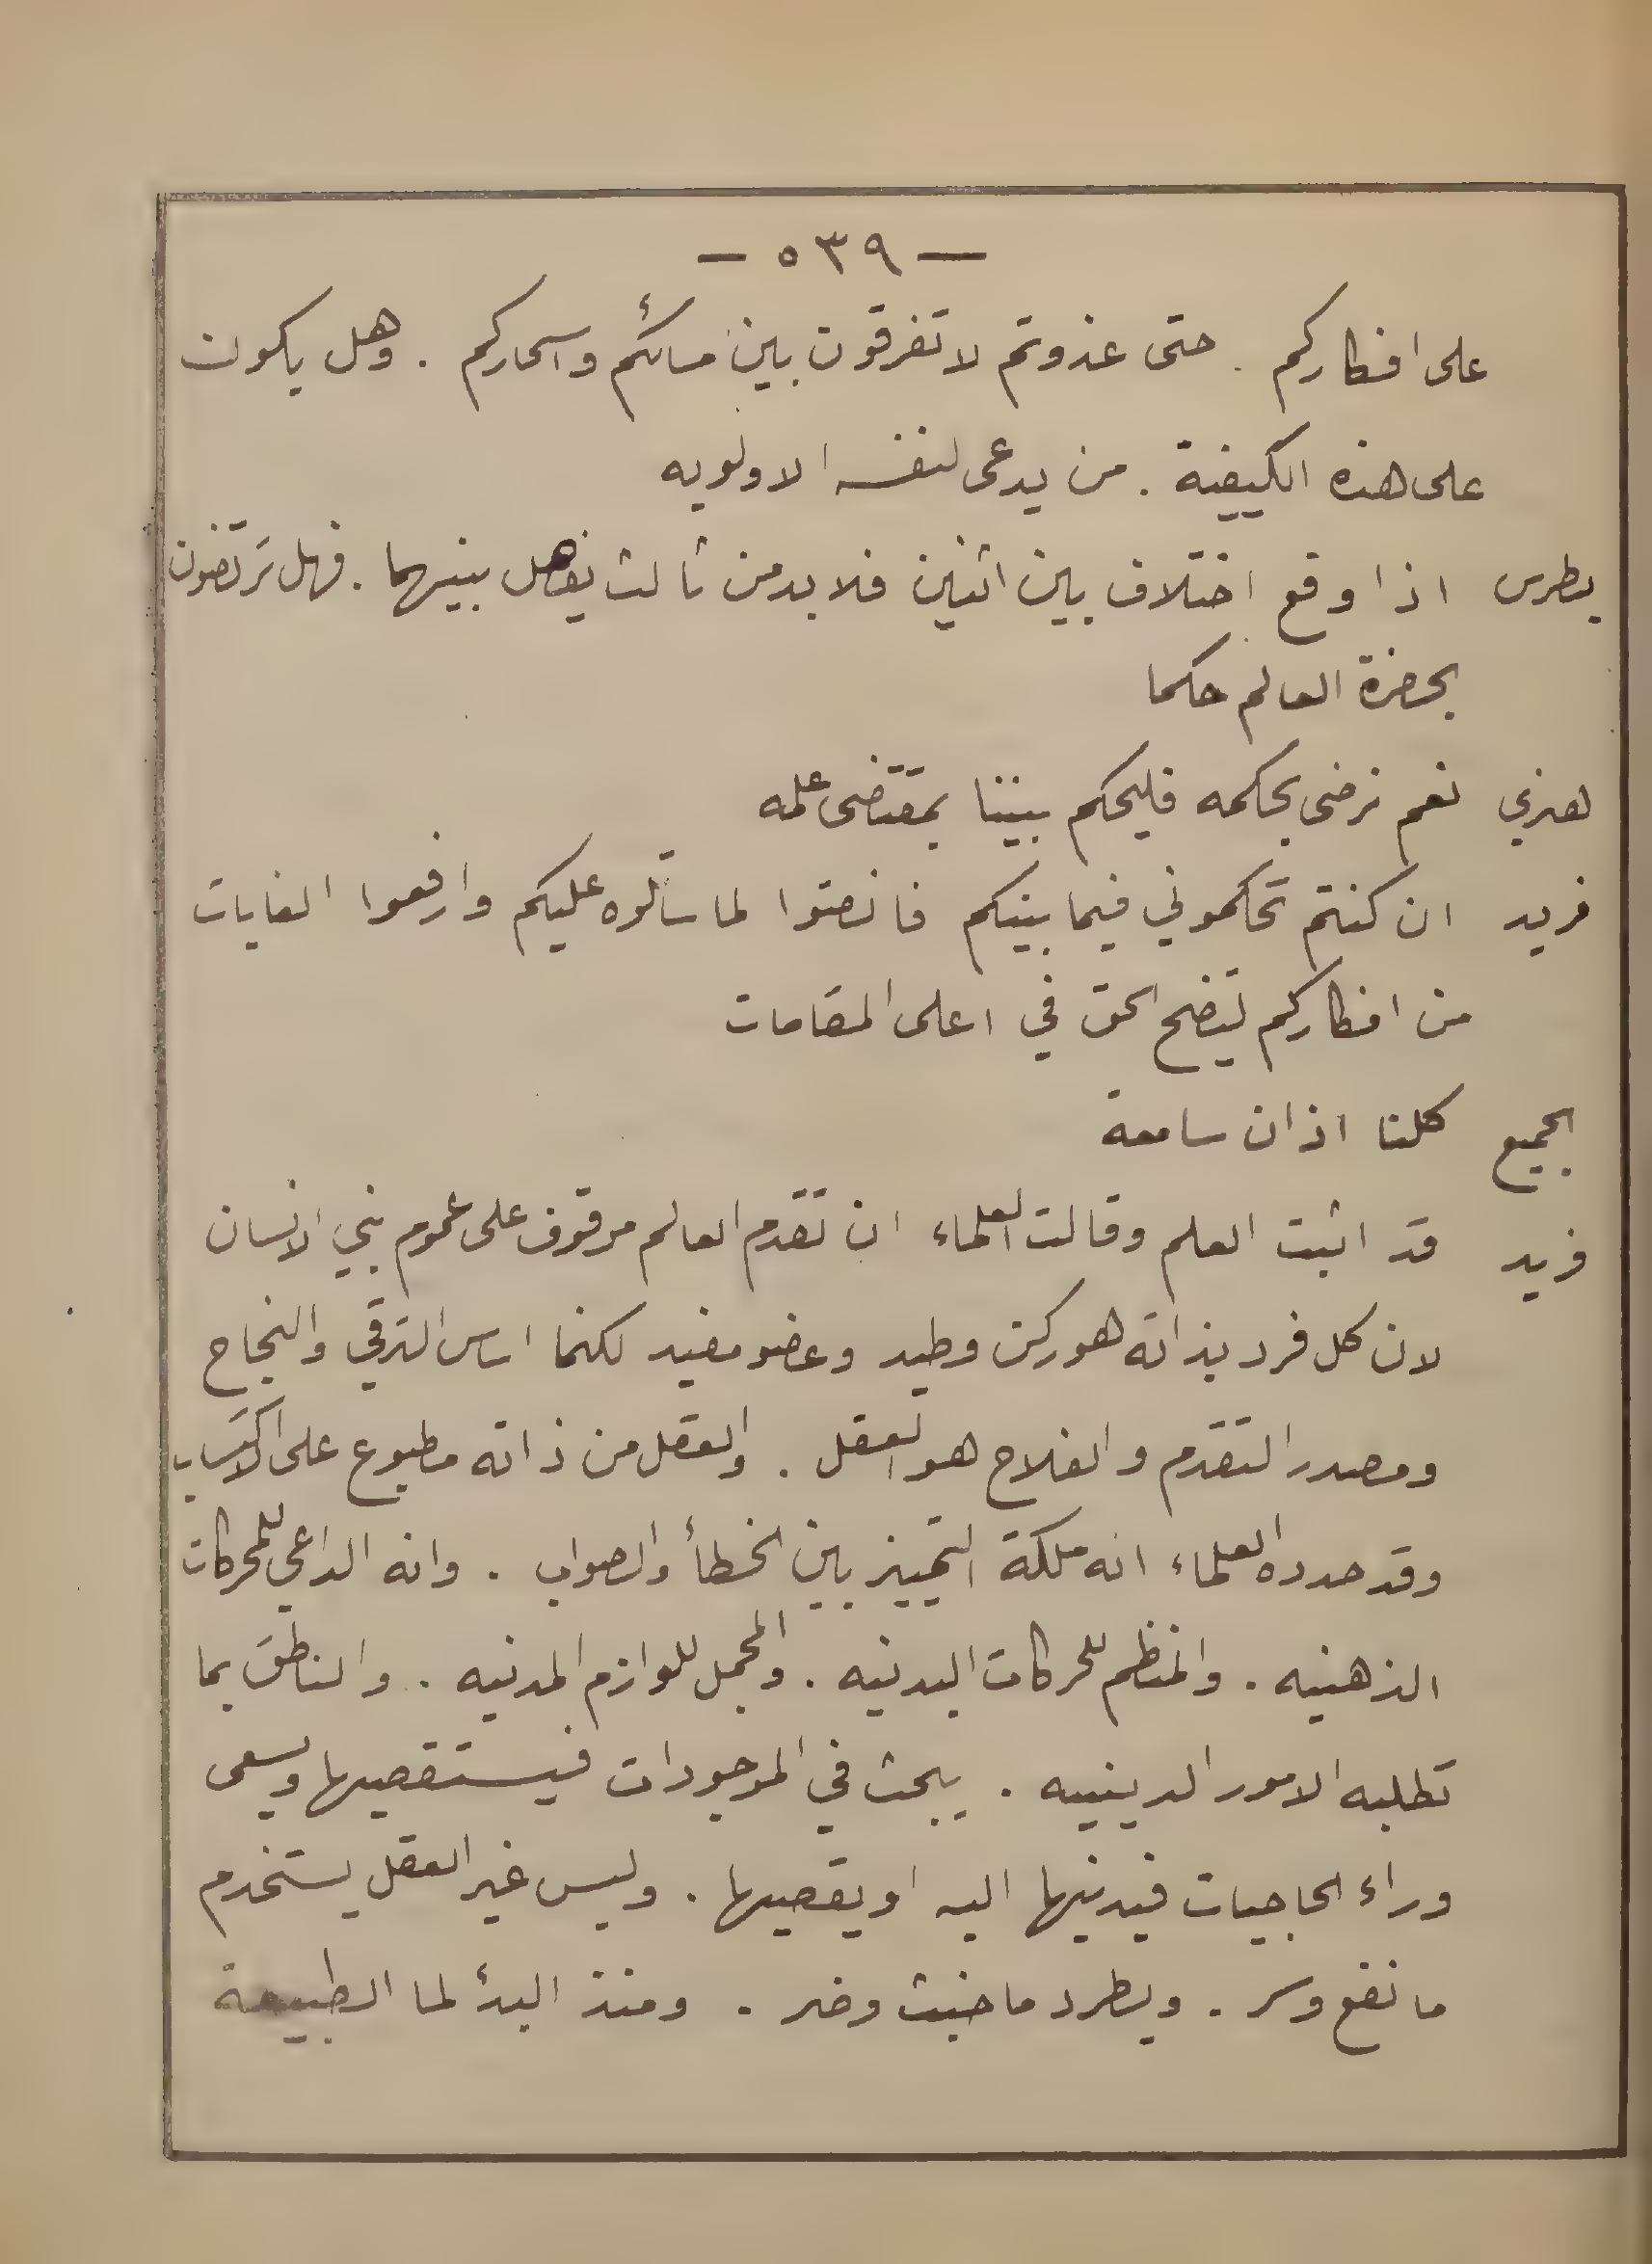 — ٥٣٩ —
على افكاركم . حتى غدوتم لا تفرقون بين مسائكم واسحاركم . وهل يكون
على هذه الكيفية . من يدعى لنفسه الاولويه
بطرس اذا وقع اختلاف بين اثنين فلا بد من ثالث يفصل بينهما . فهل ترتضون
بحضرة العالم حكما
هنري نعم نرضى بحكمه فليحكم بيننا بمقتضى علمه
فريد ان كنتم تحكموني فيما بينكم فانصتوا لما سأتلوه عليكم وارفعوا الغايات
من افكاركم ليتضح الحق في اعلى المقامات
الجميع كلنا اذان سامعة
فريد قد اثبت العلم وقالت العلماء ان تقدم العالم موقوف على عموم بني الانسان
لان كل فرد بذاته هو ركن وطيد وعضو مفيد لكنما اساس الترقي والنجاح
ومصدر التقدم والفلاح هو العقل . والعقل من ذاته مطبوع على الاكتساب
وقد حدده العلماء انه ملكة التمييز بين الخطأ والصواب . وانه الداعي للمحركات
الذهنيه . والمنظم للحركات البدنيه . والمجمل للوازم المدنيه . والناطق بما
تطلبه الامور الدينييه . يبحث في الموجودات فيستقصيها ويسعى
وراء الحاجيات فيدنيها اليه او يقصيها . وليس غير العقل يستخدم
ما نفع وسر . ويطرد ما خبث وضر . ومنذ البدأ لما الطبيعة